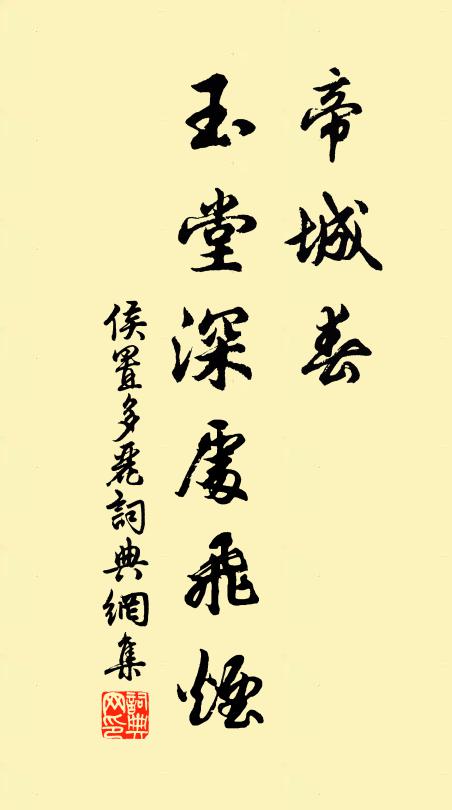 帝城春
玉堂深處飛煙
侯置多麗詞典網集
詞典网印